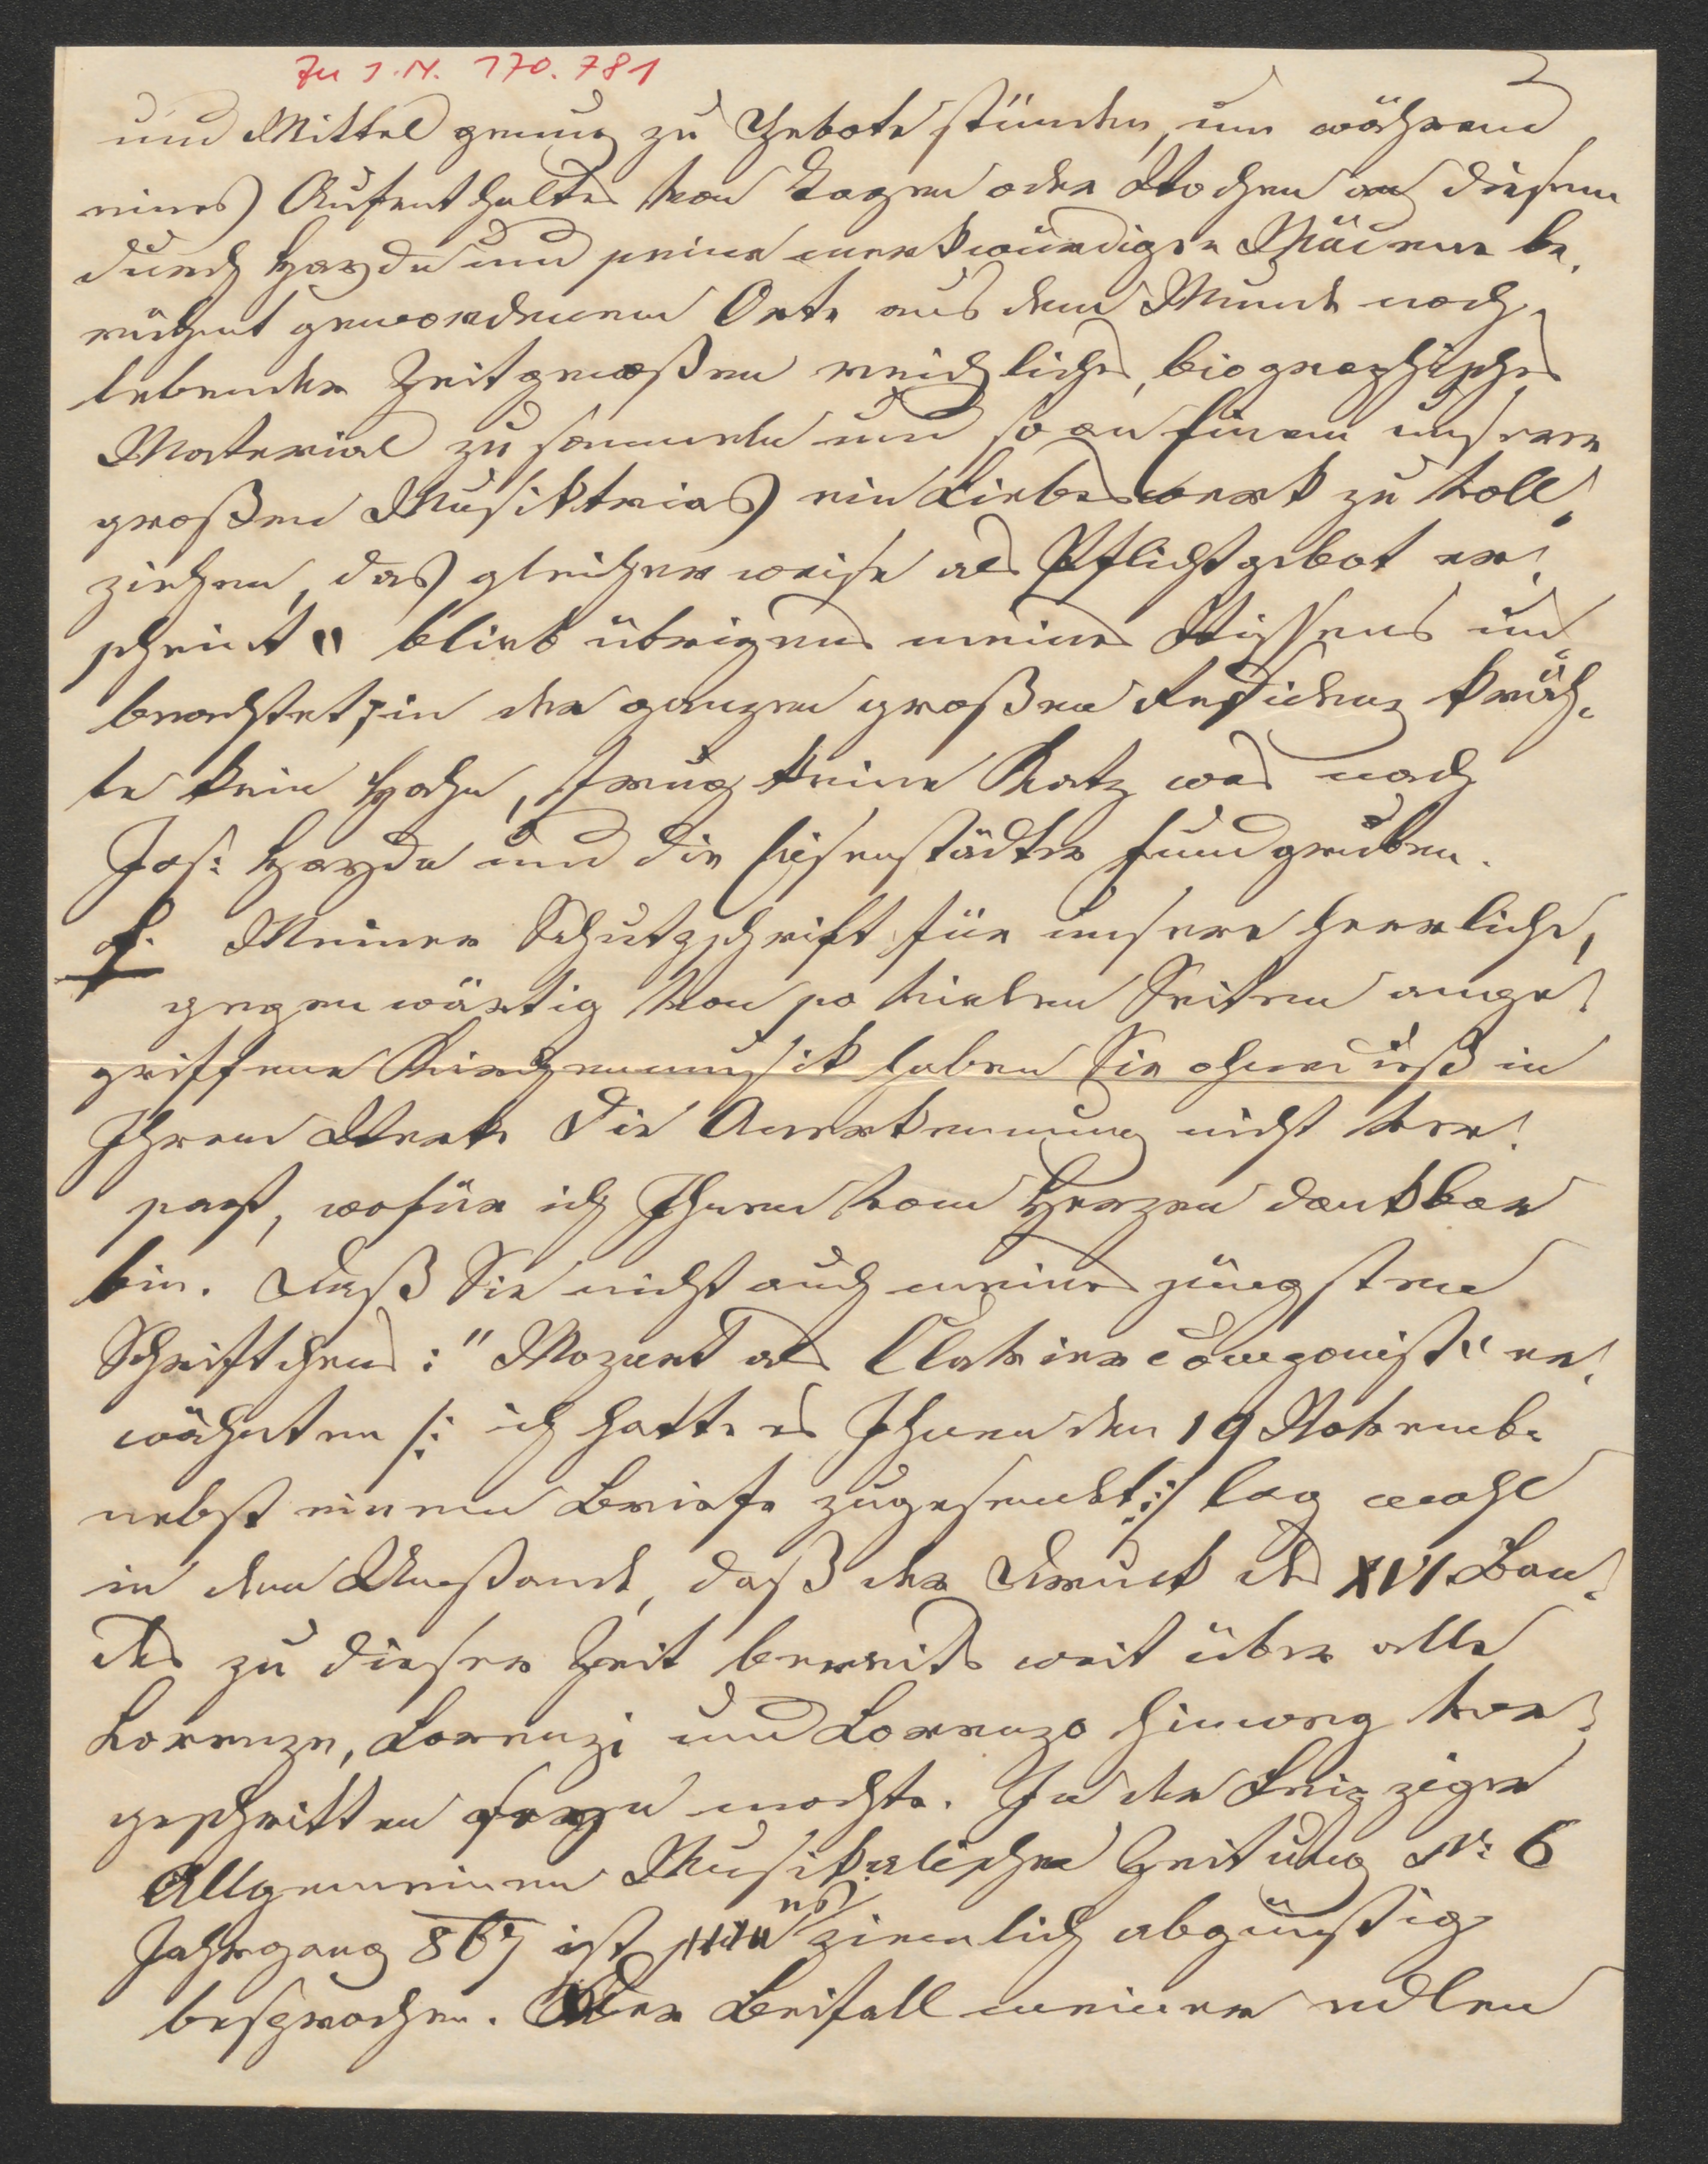 Zu I.N. 170.781
2
und Mittel genug zu Gebote stünden, um während
eines Aufenthaltes von Tagen oder Wochen an diesem
durch Haydn und seine merkwürdigen Mäcene be-
rühmt gewordenen Orte aus dem Munde noch
lebender Zeitgenoßen reichliches, biographisches
Material zu sammeln und so an Einem unserer
großen Musiktrias ein Liebeswerk zu voll-
ziehen, das gleicherweise als Pflichtgebot er-
scheint" blieb übrigens meines Wissens un-
beachtet, in der ganzen großen Residenz kräh-
te kein Hahn, frug keine Katz was nach
Jos: Haydn und die Eisenstädter Fundgruben.
f. Meiner Schutzschrift für unsere herrliche,
gegenwärtig von so vielen Seiten ange-
griffene Kirchenmusik haben Sie ohnedieß in
Ihrem Werke die Anerkennung nicht ver-
sagt, wofür ich Ihnen vom Herzen dankbar
bin. Daß Sie nicht auch meines jüngsten
Schriftchens: "Mozart als Claviercomponist" er-
wähnten /: ich hatte es Ihnen den 19 Novemb.
nebst einem Briefe zugesendet :/ lag wohl
in dem Umstande, daß der Druck des XVI Ban-
des zu dieser Zeit bereits weit über alle
Lorenze, Lorenzi und Lorenzo hinweg vor-
geschritten seyn mochte. In der Leipziger
Allgemeinen Musikalischen Zeitung No: 6
Jahrgang 867 ist es ziemlich abgünstig
besprochen. Der Beifall meiner edlen